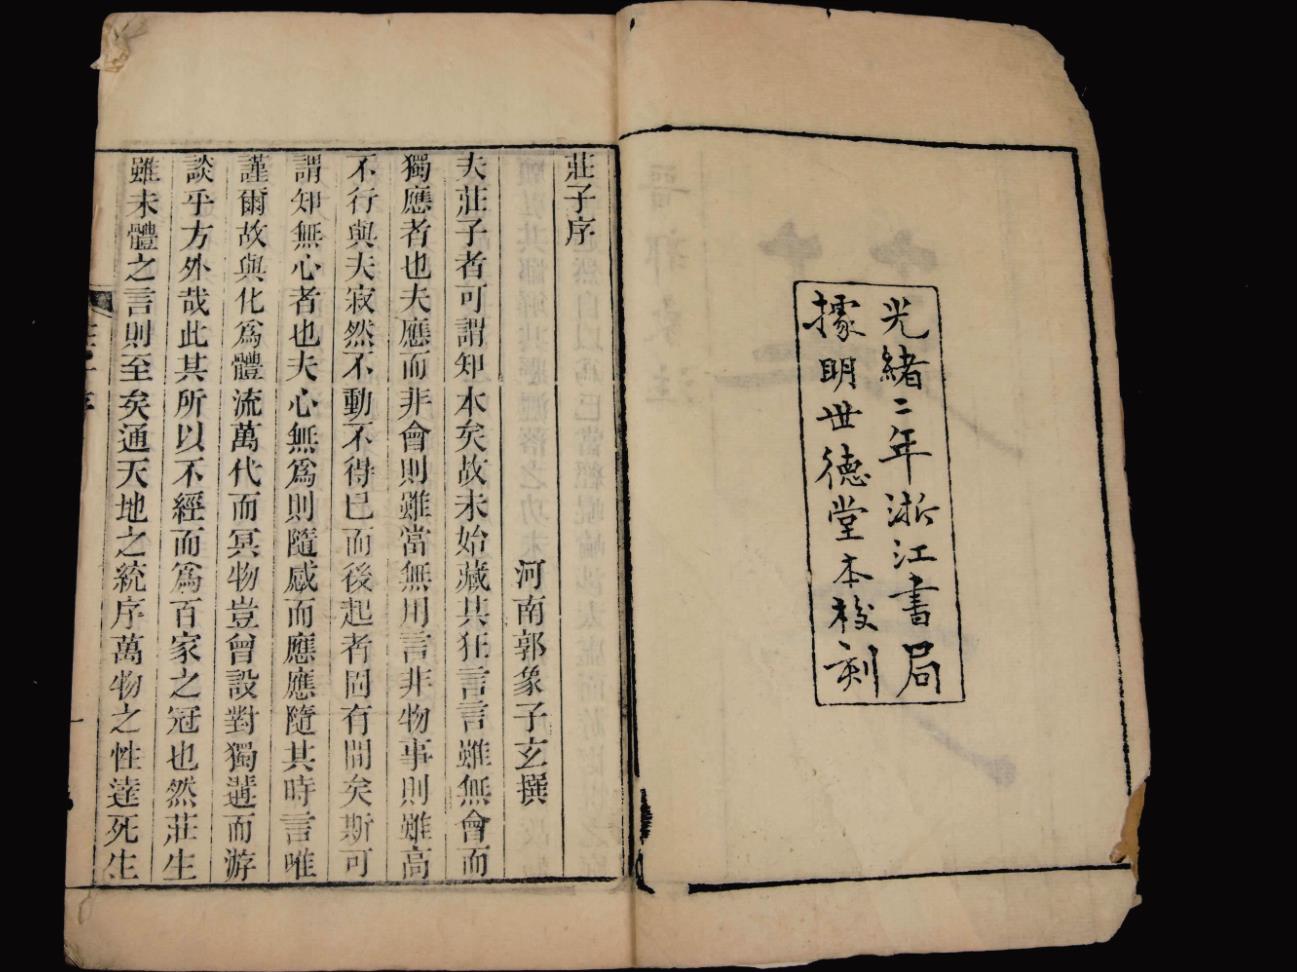 光緒二年浙江書局
據明世德堂本校刻
莊子序
河南郭象子玄撰
夫莊子者可謂知本矣故未始藏其狂言言雖無會而
獨應者也夫應而非會則雖當無用言非物事則雖高
不行與夫寂然不動不得已而後起者固有間矣斯可
謂知無心者也夫心無爲則隨感而應應隨其時言唯
謹爾故與化爲體流萬代而冥物豈曾設對獨遘而游
談乎方外哉此其所以不經而爲百家之冠也然莊生
雖未體之言則至矣通天地之統序萬物之性達死生